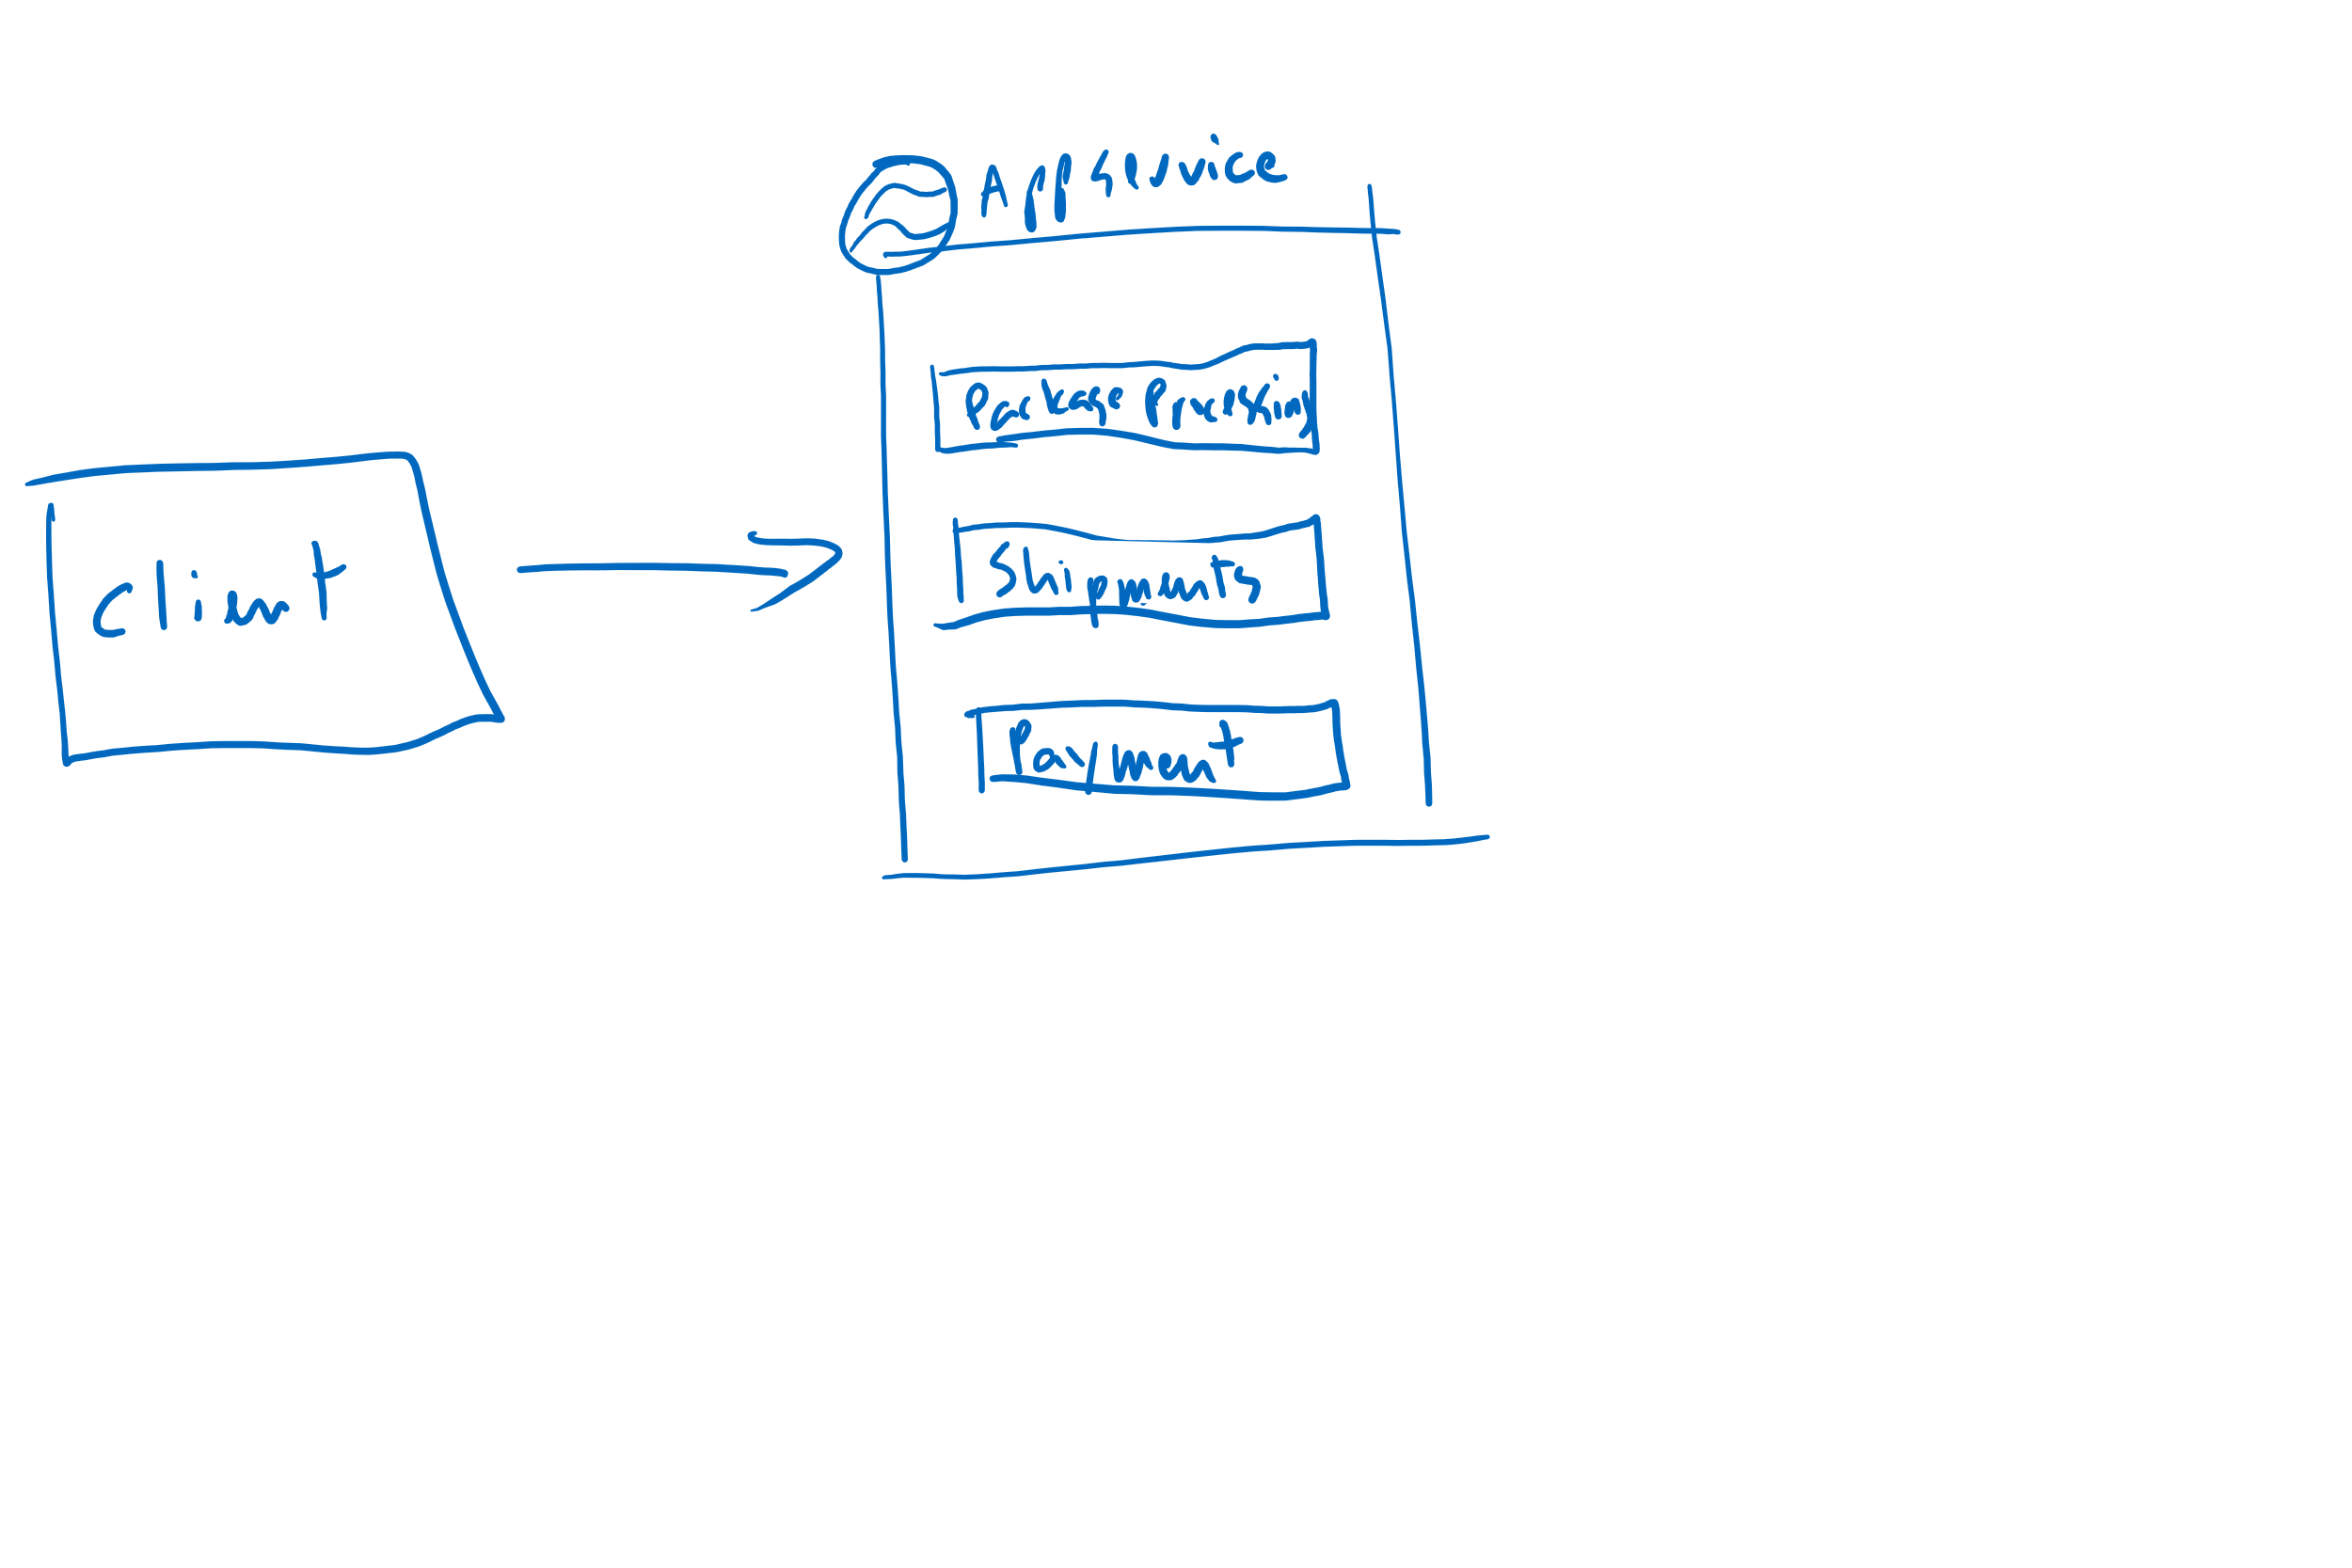 Client
App Service
Package Processing
Shipments
Payment